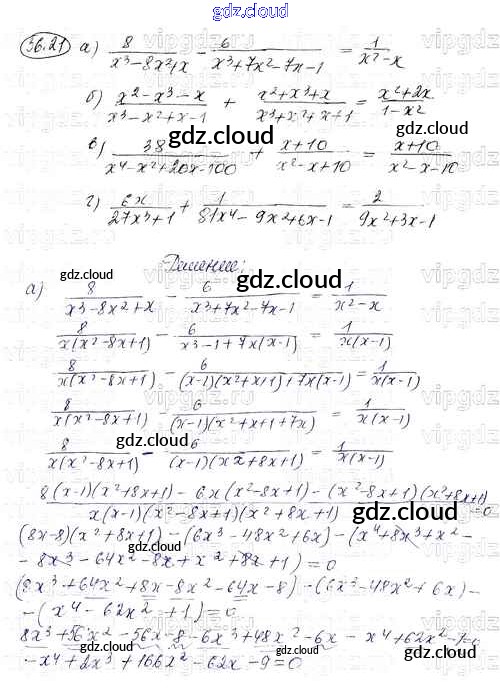 gdz.cloud
36.21 а) 8/(x³-8x²+x) - 6/(x³+7x²-7x-1) = 1/(x²-x)
б) (x²-x³-x)/(x³-x²+x-1) + (x²+x³+x)/(x³+x²+x+1) = (x²+2x)/(1-x²)
в) 38/(x⁴-x²+20x-100) + (x+10)/(x²-x+10) = (x+10)/(x²-x-10)
г) 6x/(27x³+1) + 1/(81x⁴-9x²+6x-1) = 2/(9x²+3x-1)
Решение:
а) 8/(x³-8x²+x) - 6/(x³+7x²-7x-1) = 1/(x²-x)
8/(x(x²-8x+1)) - 6/(x³-1+7x(x-1)) = 1/(x(x-1))
8/(x(x²-8x+1)) - 6/((x-1)(x²+x+1)+7x(x-1)) = 1/(x(x-1))
8/(x(x²-8x+1)) - 6/((x-1)(x²+x+1+7x)) = 1/(x(x-1))
8/(x(x²-8x+1)) - 6/((x-1)(xx+8x+1)) = 1/(x(x-1))
(8(x-1)(x²+8x+1) - 6x(x²-8x+1) - (x²-8x+1)(x²+8x+1))/(x(x-1)(x²-8x+1)(x²+8x+1)) = 0
(8x-8)(x²+8x+1) - (6x³-48x²+6x) - (x⁴+8x³+x²-
-8x³-64x²-8x+x²+8x+1) = 0
(8x³+64x²+8x-8x²-64x-8) - (6x³-48x²+6x) -
-(x⁴-62x²+1) = 0
8x³+56x²-56x-8-6x³+48x²-6x-x⁴+62x²-1=0
-x⁴+2x³+166x²-62x-9=0